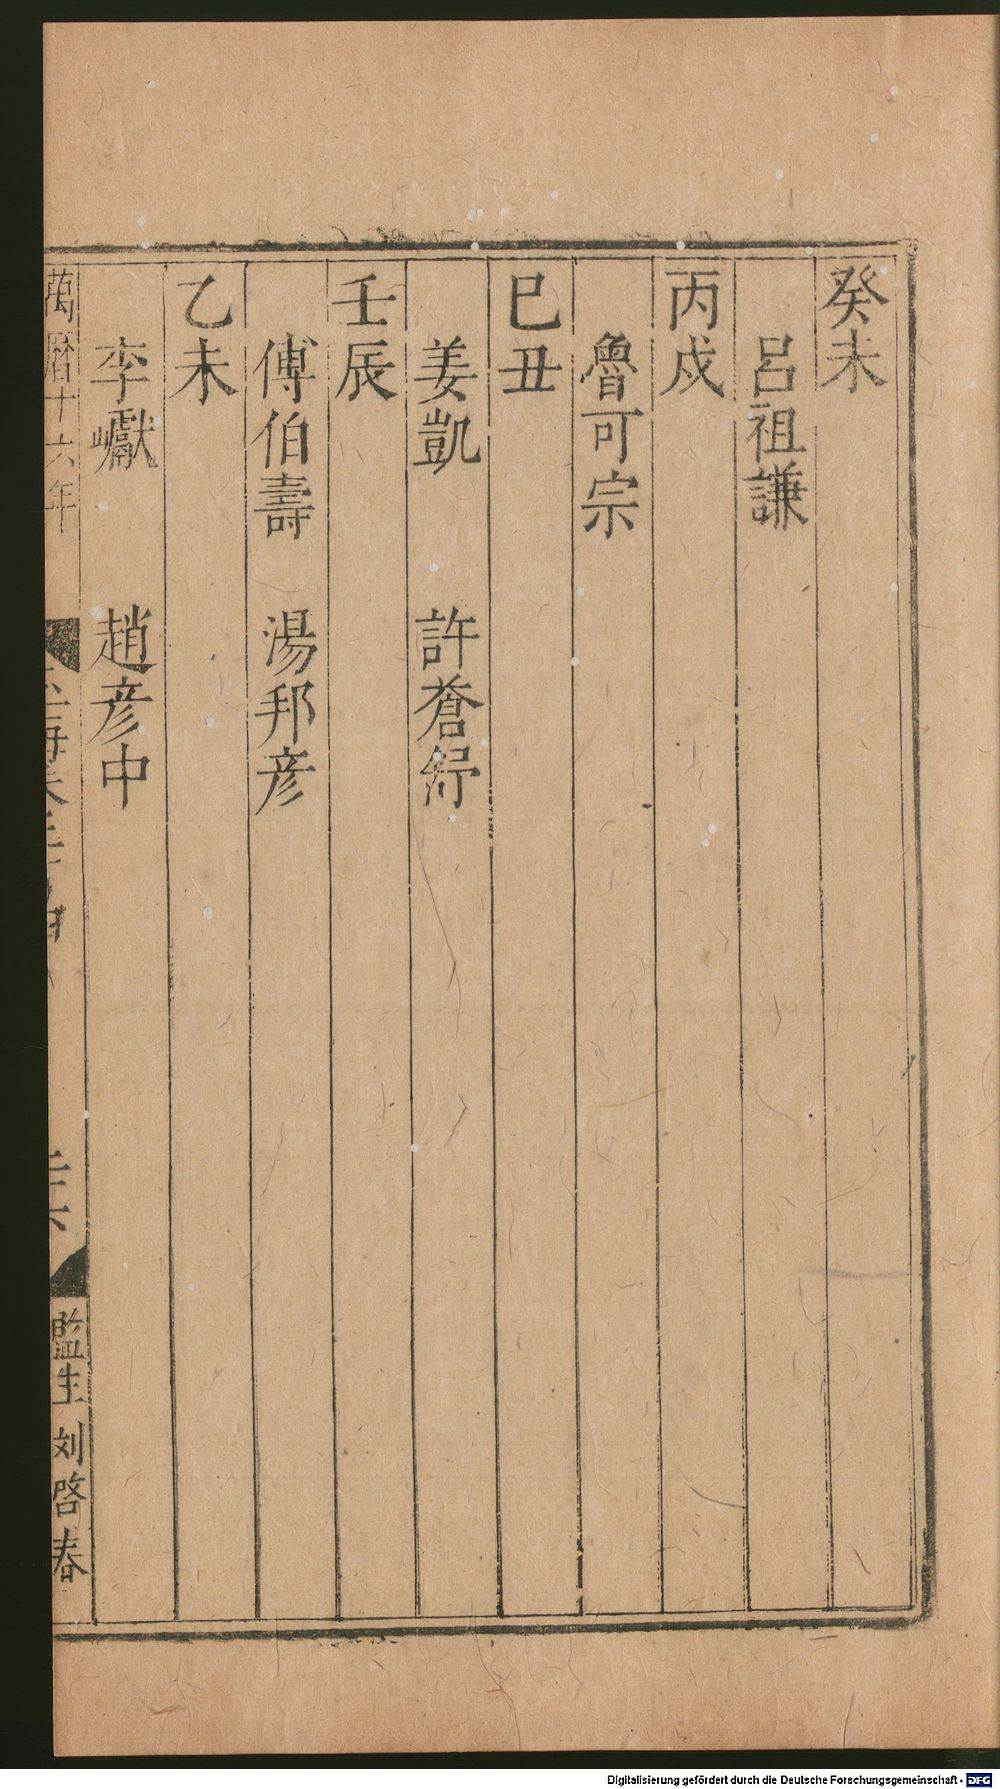 癸未
呂祖謙
丙戍
魯可宗
巳丑
姜凱 許蒼舒
壬辰
傅伯壽 湯邦彦
乙未
李巘 趙彦中
萬曆十六年
監生刘啓春
Digitalisierung gefördert durch die Deutsche Forschungsgemeinschaft - DFG